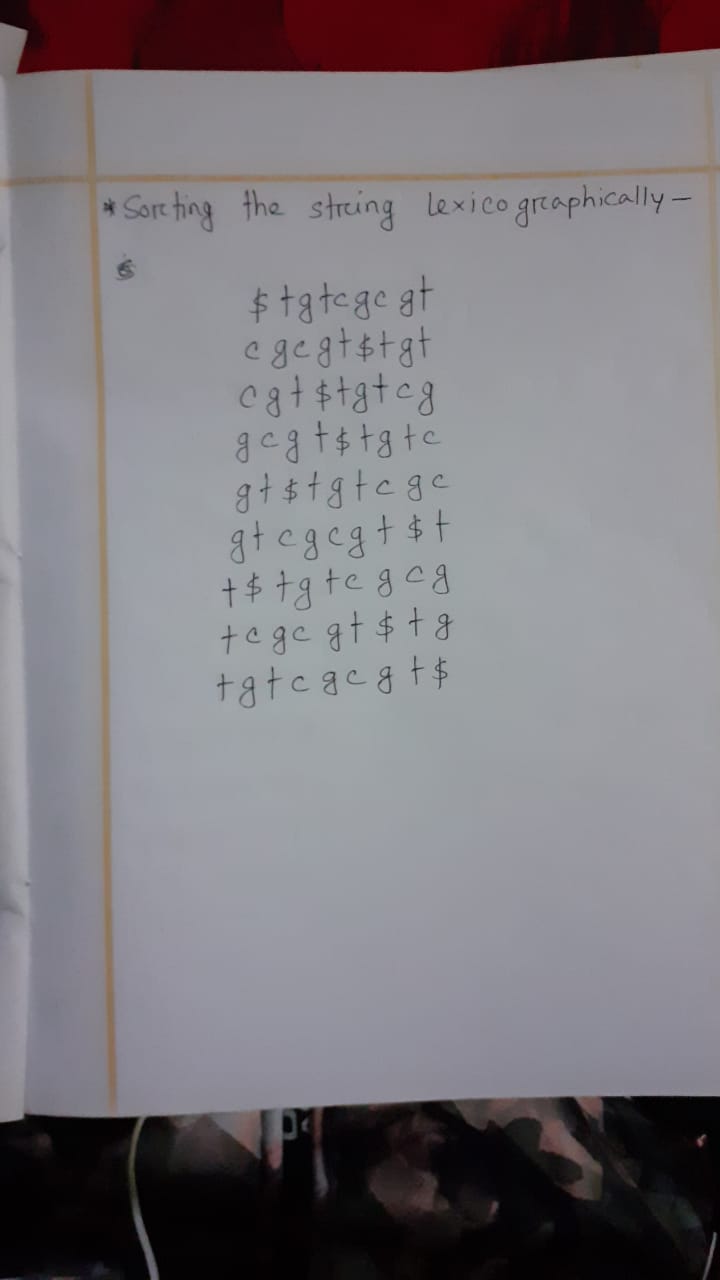 * Sorting the string Lexicographically-
$tgtcgcgt
cgcgt$tgt
cgt$tgtcg
gcgt$tgtc
gt$tgtcgc
gtcgcgt$t
t$tgtcgcg
tcgcgt$tg
tgtcgcgt$